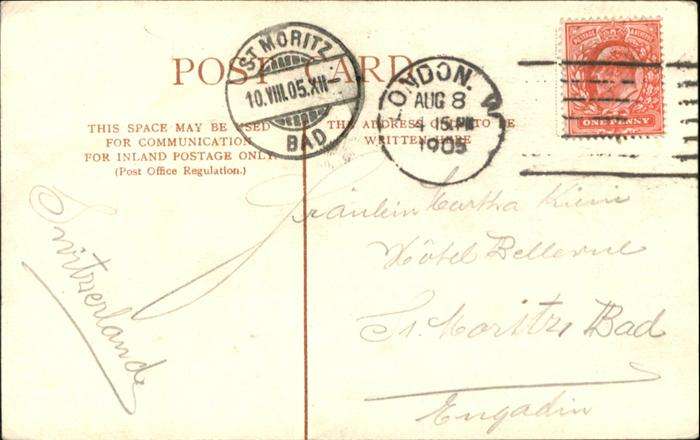 POST CARD
ST MORITZ
10.VIII.05.XII-
BAD
LONDON.
AUG 8
4 15 PM
1905
POSTAGE
ONE PENNY
THIS SPACE MAY BE USED
FOR COMMUNICATION
FOR INLAND POSTAGE ONLY.
(Post Office Regulation.)
THE ADDRESS ONLY TO BE
WRITTEN HERE
Switzerland
Fräulein Martha
Hôtel Bellevue
St. Moritz Bad
Engadin